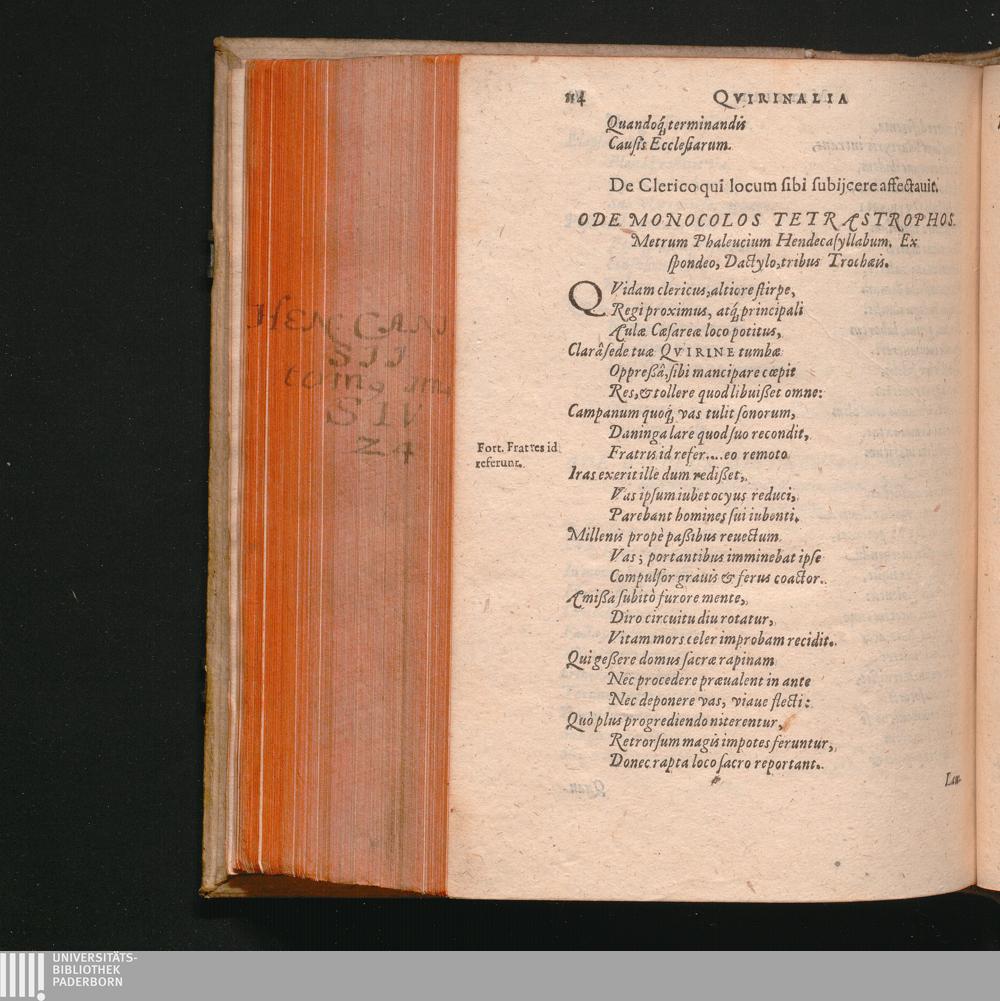 114 QVIRINALIA
Quandoq́; terminandis
Causis Ecclesiarum.
De Clerico qui locum sibi subijcere affectauit.
ODE MONOCOLOS TETRÆSTROPHOS.
Metrum Phaleucium Hendecasyllabum. Ex
spondeo, Dactylo, tribus Trochæis.
QVidam clericus, altiore stirpe,
Regi proximus, atq́; principali
Æulæ Cæsareæ loco potitus,
Clarâ sede tuæ QVIRINE tumbæ
Oppreßâ, sibi mancipare cœpit
Res, & tollere quod libuißet omne:
Campanum quoq́; vas tulit sonorum,
Daninga lare quod suo recondit,
Fort. Fratres id
referunt.
Fratris id refer.... eo remoto
Iras exerit ille dum redißet,
Vas ipsum iubet ocyus reduci,
Parebant homines sui iubenti.
Millenis propè paßibus reuectum
Vas; portantibus imminebat ipse
Compulsor grauis & ferus coactor.
Æmißa subitò furore mente,
Diro circuitu diu rotatur,
Vitam mors celer improbam recidit.
Qui geßere domus sacræ rapinam
Nec procedere præualent in ante
Nec deponere vas, viaue flecti:
Quò plus progrediendo niterentur,
Retrorsum magis impotes feruntur,
Donec rapta loco sacro reportant.
Lau-
HEN CANI
SII
tomg m
SIV
24
UNIVERSITÄTS-
BIBLIOTHEK
PADERBORN